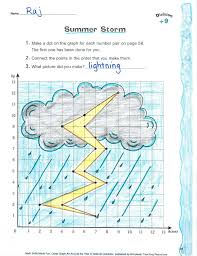 Name Raj
Division
÷9
Summer Storm
1. Make a dot on the graph for each number pair on page 58.
The first one has been done for you.
2. Connect the points in the order that you make them.
3. What picture did you make? lightning
12
11
10
9
8
7
6
5
4
3
2
1
0 1 2 3 4 5 6 7 8 9 10 11 12 13